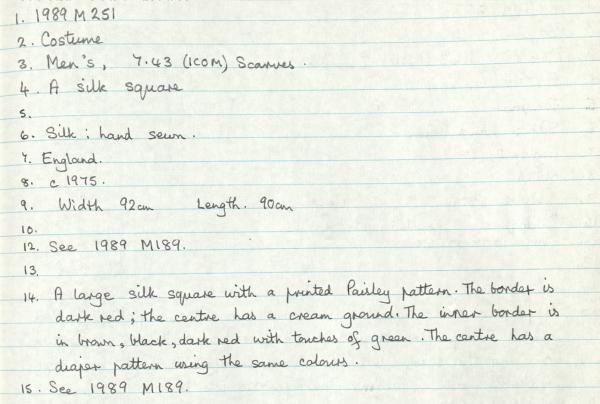 1. 1989 M 251
2. Costume
3. Men's, 7.43 (ICOM) Scarves.
4. A silk square
5.
6. Silk : hand sewn.
7. England.
8. c 1975.
9. Width 92cm Length. 90cm
10.
12. See 1989 M189.
13.
14. A large silk square with a printed Paisley pattern. The border is
dark red; the centre has a cream ground. The inner border is
in brown, black, dark red with touches of green. The centre has a
diaper pattern using the same colours.
15. See 1989 M189.